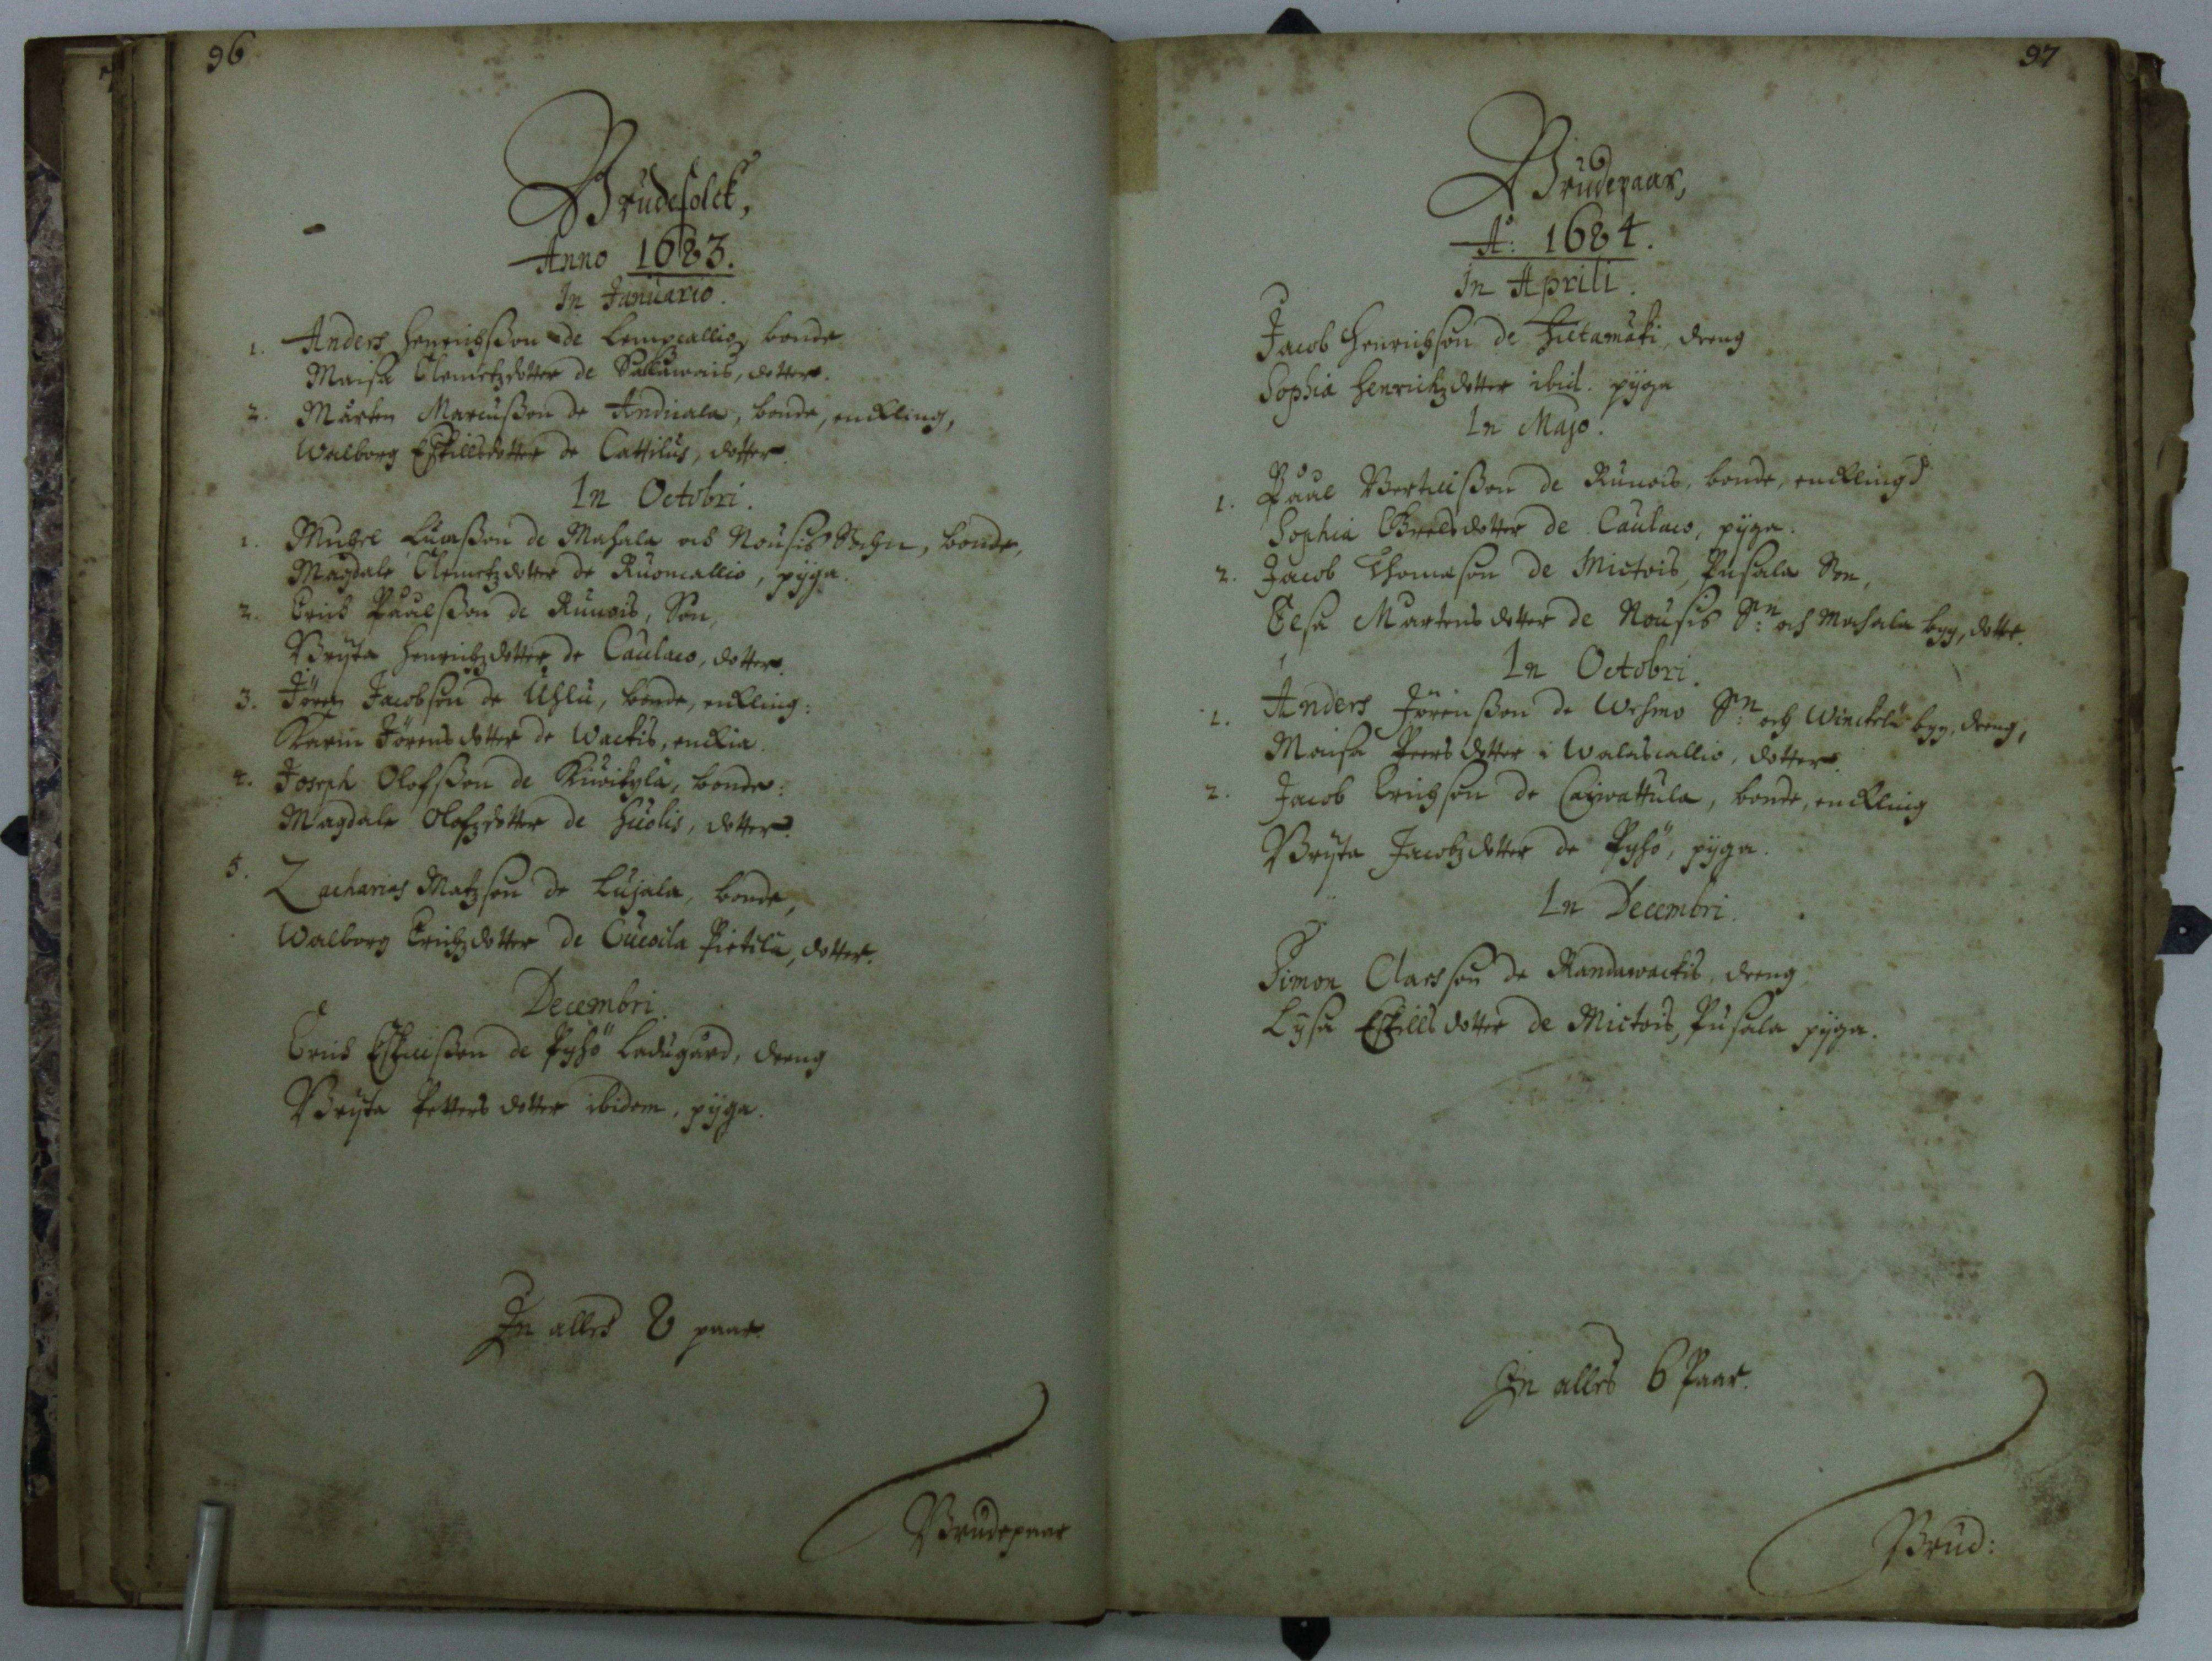 96
Brudefolck,
Anno 1683.
In Januario.
1. Anders Henrichsson de Lempcallio, bonde
Maisa Clemetzdotter de dotter.
2. Mårten Marcusson de Andicala, bonde, enckling,
Walborg Eskillsdotter de Cattilus, dotter.
In Octobri.
1. Michel de Mahala och Nousis Sochn, bonde,
Magdale Clemetzdotter de Ruoncallio, pijga.
2. Erich Påålsson de Runois, Son,
Brijta Henrichzdotter de Caulaes, dotter.
3. Jören Jacobson de Uhlu, bonde, enckling:
Karin Jörensdotter de Wackis, enckia.
4. Joseph Olofsson de Kiwikylä, bonde:
Magdale Olofzdotter de Huolis, dotter.
5. Zacharias Matzson de Lujala, bonde,
Walborg Erichzdotter de Pietilä, dotter.
Decembri.
Erich de Pyhö Ladugård, dreng
Brijta Petters dotter ibidem, pijga.
In alles 8 paar.
Brudepaar
97
Brudepaar,
Aº: 1684.
In Aprili.
Jacob Henrichson de Hietamäki, dreng
Sophia Henrichzdotter ibid. pijga
In Majo.
1. Påål de Runois, bonde, enckling
Sophia dotter de Caulaes, pijga.
2. Jacob Thomason de Mictois, Pusala Son,
Elsa Martens dotter de Nousis Sn: och Mahala byy, dotter.
In Octobri.
1. Anders Jörensson de Wehmo Sn: och Winckelä byy, dreng,
Maisa Peersdotter i Walascallio, dotter.
2. Jacob Erichson de Caiwattula, bonde, enckling
Brijta Jacobzdotter de Pyhö, pijga.
In Decembri.
Simon Clarsson de Randawackis, dreng,
Lysa Eskills dotter de Mictois, Pusala pijga.
In alles 6 Paar.
Brud: